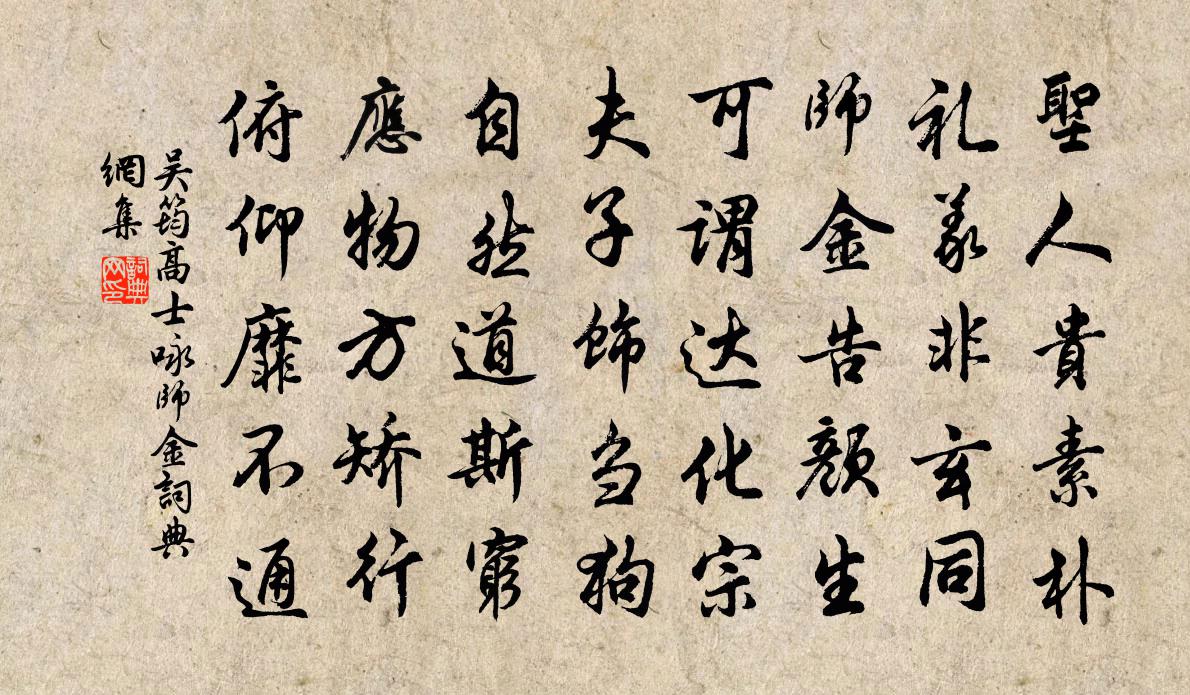 聖人貴素朴
礼義非玄同
師金告顏生
可謂达化宗
夫子饰刍狗
自然道斯窮
應物方矫行
俯仰靡不通
吴筠高士咏師金詞典
網集
詞典
网印